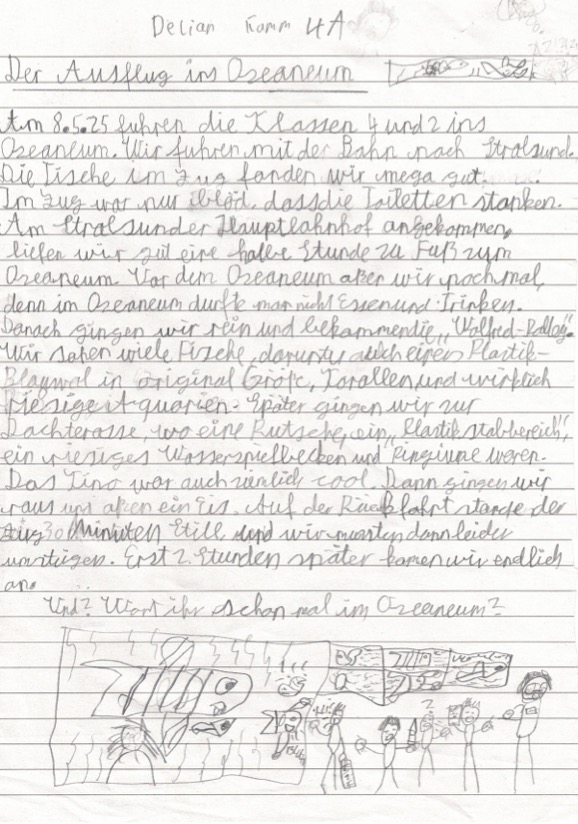 Delian Komm 4A
Der Ausflug ins Ozeaneum
Am 8.5.25 fuhren die Klassen 4 und 2 ins
Ozeaneum. Wir fuhren mit der Bahn nach Stralsund.
Die Tische im Zug fanden wir mega gut.
Im Zug war nur blöd, dass die Toiletten stanken.
Am Stralsunder Hauptbahnhof angekommen,
liefen wir gut eine halbe Stunde zu Fuß zum
Ozeaneum. Vor dem Ozeaneum aßen wir nochmal,
denn im Ozeaneum durfte man nicht Essen und Trinken.
Danach gingen wir rein und bekammen die „Walfred-Ralley".
Wir sahen viele Fische, darunter auch einen Plastik-
Blauwal in original Größe, Korallen und wirklich
riesige Aquarien. Später gingen wir zur
Dachterasse, wo eine Rutsche, ein „Plastikstabbereich",
ein riesiges Wasserspielbecken und Pinguine waren.
Das Kino war auch ziemlich cool. Dann gingen wir
raus und aßen ein Eis. Auf der Rückfahrt stande der
Zug 30 Minuten Still und wir mussten dann leider
umsteigen. Erst 2. Stunden später kamen wir endlich
an.
Und? Wart ihr schon mal im Ozeaneum?